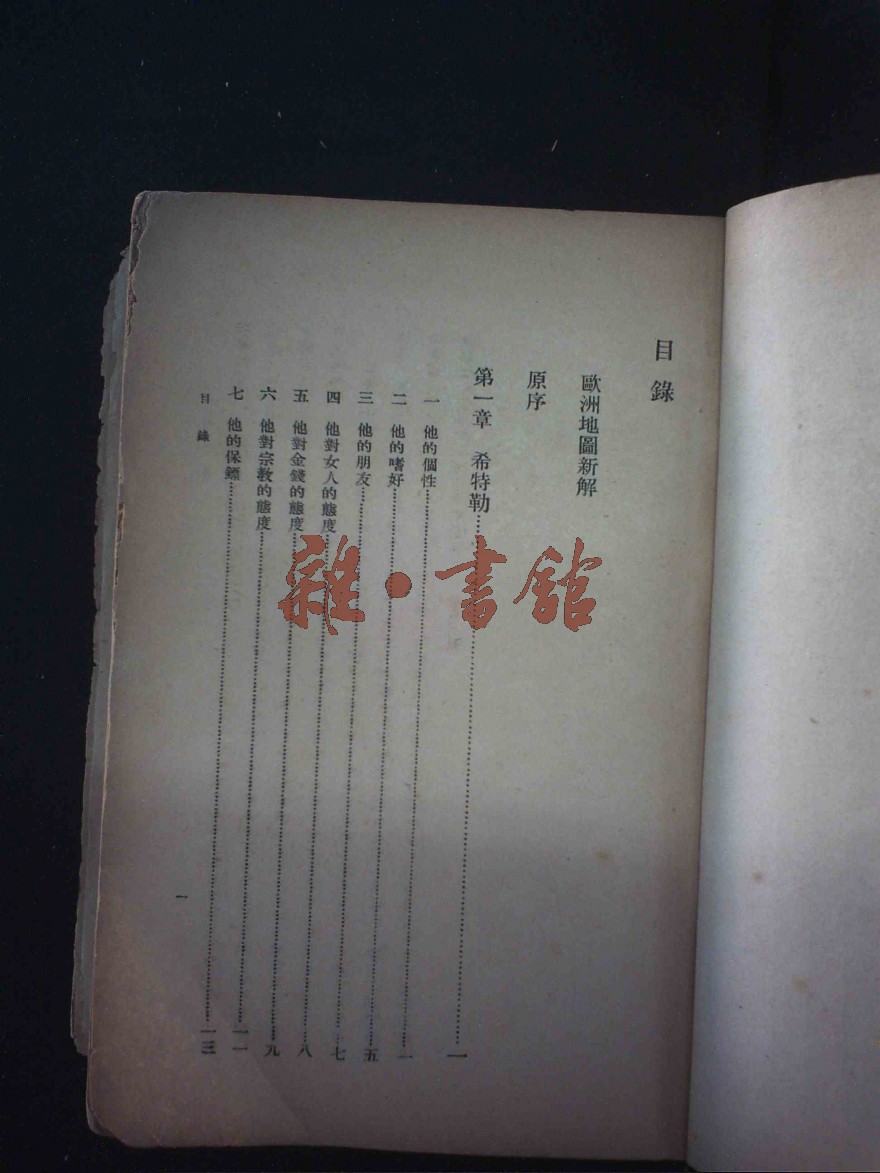 目錄
歐洲地圖新解
原序
第一章 希特勒……一
一 他的個性……一
二 他的嗜好……五
三 他的朋友……七
四 他對女人的態度……八
五 他對金錢的態度……九
六 他對宗教的態度……一一
七 他的保鏢……一三
目錄
一
雜·書館